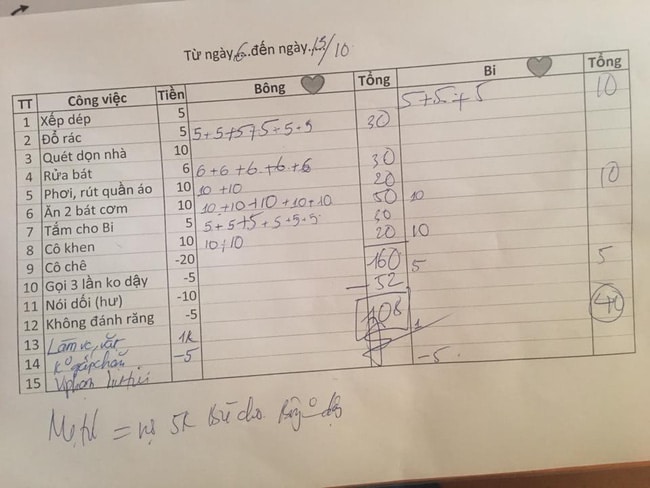 Từ ngày 6 đến ngày 13/10
TT Công việc Tiền Bông Tổng Bi Tổng
1 Xếp dép 5 5+5+5 10
2 Đổ rác 5 5+5+5+5+5+5 30
3 Quét dọn nhà 10
4 Rửa bát 6 6+6+6+6+6 30
5 Phơi, rút quần áo 10 10+10 20 10
6 Ăn 2 bát cơm 10 10+10+10+10+10 50 10
7 Tắm cho Bi 5 5+5+5+5+5+5 30
8 Cô khen 10 10+10 20 10
9 Cô chê -20 160 5 5
10 Gọi 3 lần ko dậy -5 -52
11 Nói dối (hư) -10 108
12 Không đánh răng -5
13 1k
14 -5 -5
15
= nợ 5k cho